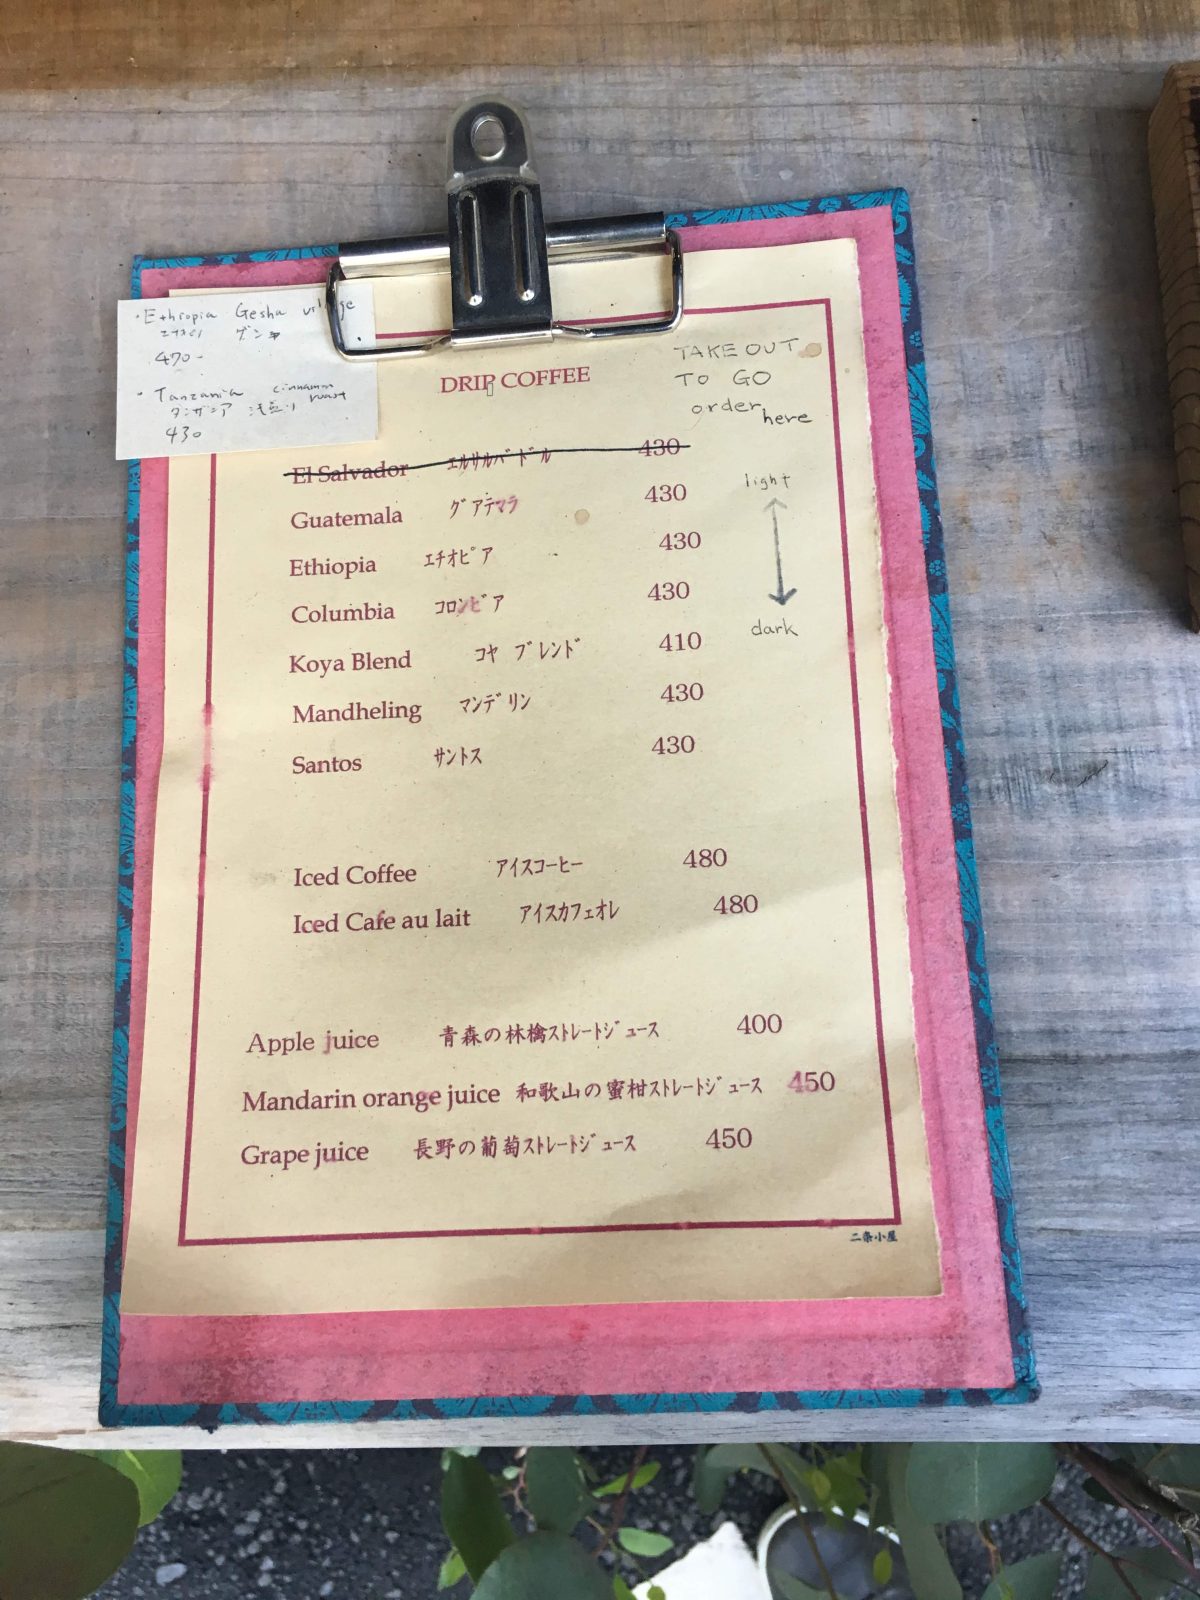 ・Ethiopia Gesha village
エチオピア ゲシャ
470-
・Tanzania cinnamon roast
タンザニア 浅煎り
430
DRIP COFFEE
TAKE OUT
TO GO
order here
El Salvador エルサルバドル 430
light
Guatemala グアテマラ 430
Ethiopia エチオピア 430
Columbia コロンビア 430
dark
Koya Blend コヤ ブレンド 410
Mandheling マンデリン 430
Santos サントス 430
Iced Coffee アイスコーヒー 480
Iced Cafe au lait アイスカフェオレ 480
Apple juice 青森の林檎ストレートジュース 400
Mandarin orange juice 和歌山の蜜柑ストレートジュース 450
Grape juice 長野の葡萄ストレートジュース 450
二条小屋